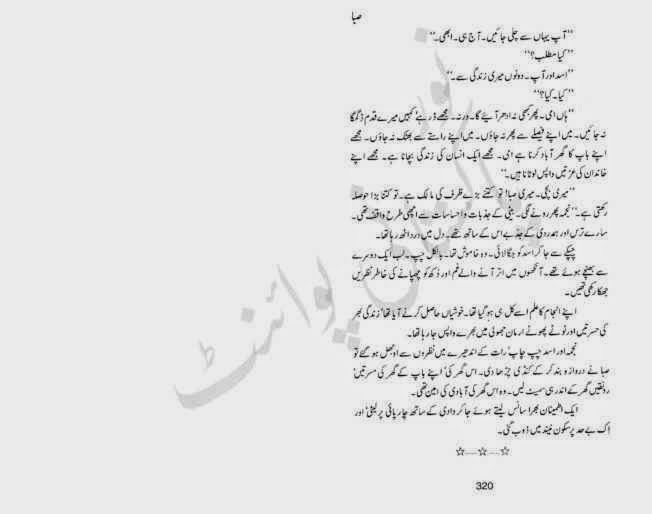 صبا
’’آپ یہاں سے چلی جائیں۔ آج ہی۔ ابھی۔‘‘
’’کیا مطلب؟‘‘
’’اسد اور آپ۔ دونوں میری زندگی سے۔‘‘
’’کیا۔ کیا؟‘‘
’’ہاں امی۔ پھر کبھی نہ ادھر آیئے گا۔ ورنہ۔ مجھے ڈر ہے‘ کہیں میرے قدم ڈگمگا
نہ جائیں۔ میں اپنے فیصلے سے پھر نہ جاؤں۔ میں اپنے راستے سے بھٹک نہ جاؤں۔ مجھے
اپنے باپ کا گھر آباد کرنا ہے امی۔ مجھے ایک انسان کی زندگی بچانا ہے۔ مجھے اپنے
خاندان کی عزتیں واپس لوٹانا ہیں۔‘‘
’’میری بچی۔ میری صبا! تو کتنے بڑے ظرف کی مالک ہے۔ تو کتنا بڑا حوصلہ
رکھتی ہے۔‘‘ نجمہ پھر رونے لگی۔ بیٹی کے جذبات و احساسات سے اچھی طرح واقف تھی۔
سارے ترس اور ہمدردی کے جذبے اس کے ساتھ تھے۔ دل میں درد اٹھ رہا تھا۔
چپکے سے جا کر اسد کو جگا لائی۔ وہ خاموش تھا۔ بالکل چپ۔ لب ایک دوسرے
سے بھینچے ہوئے تھے۔ آنکھوں میں اتر آنے والے غم اور دکھ کو چھپانے کی خاطر نظریں
جھکا رکھی تھیں۔
اپنے انجام کا علم اسے کل ہی ہو گیا تھا۔ خوشیاں حاصل کرنے آیا تھا‘ زندگی بھر کی
حسرتیں اور ٹوٹے پھوٹے ارمان جھولی میں بھرے واپس جا رہا تھا۔
نجمہ اور اسد چپ چاپ‘ رات کے اندھیرے میں نظروں سے اوجھل ہو گئے تو
صبا نے دروازہ بند کر کے کنڈی چڑھا دی۔ اس گھر کی‘ اپنے باپ کے گھر کی مسرتیں‘
رونقیں گھر کے اندر ہی سمیٹ لیں۔ وہ اس گھر کی آبادی کی امین تھی۔
ایک اطمینان بھرا سانس لیتے ہوئے جا کر دادی کے ساتھ چارپائی پر لیٹی‘ اور
اک بے حد پرسکون نیند میں ڈوب گئی۔
☆......☆......☆
320
پاکستانی پوائنٹ